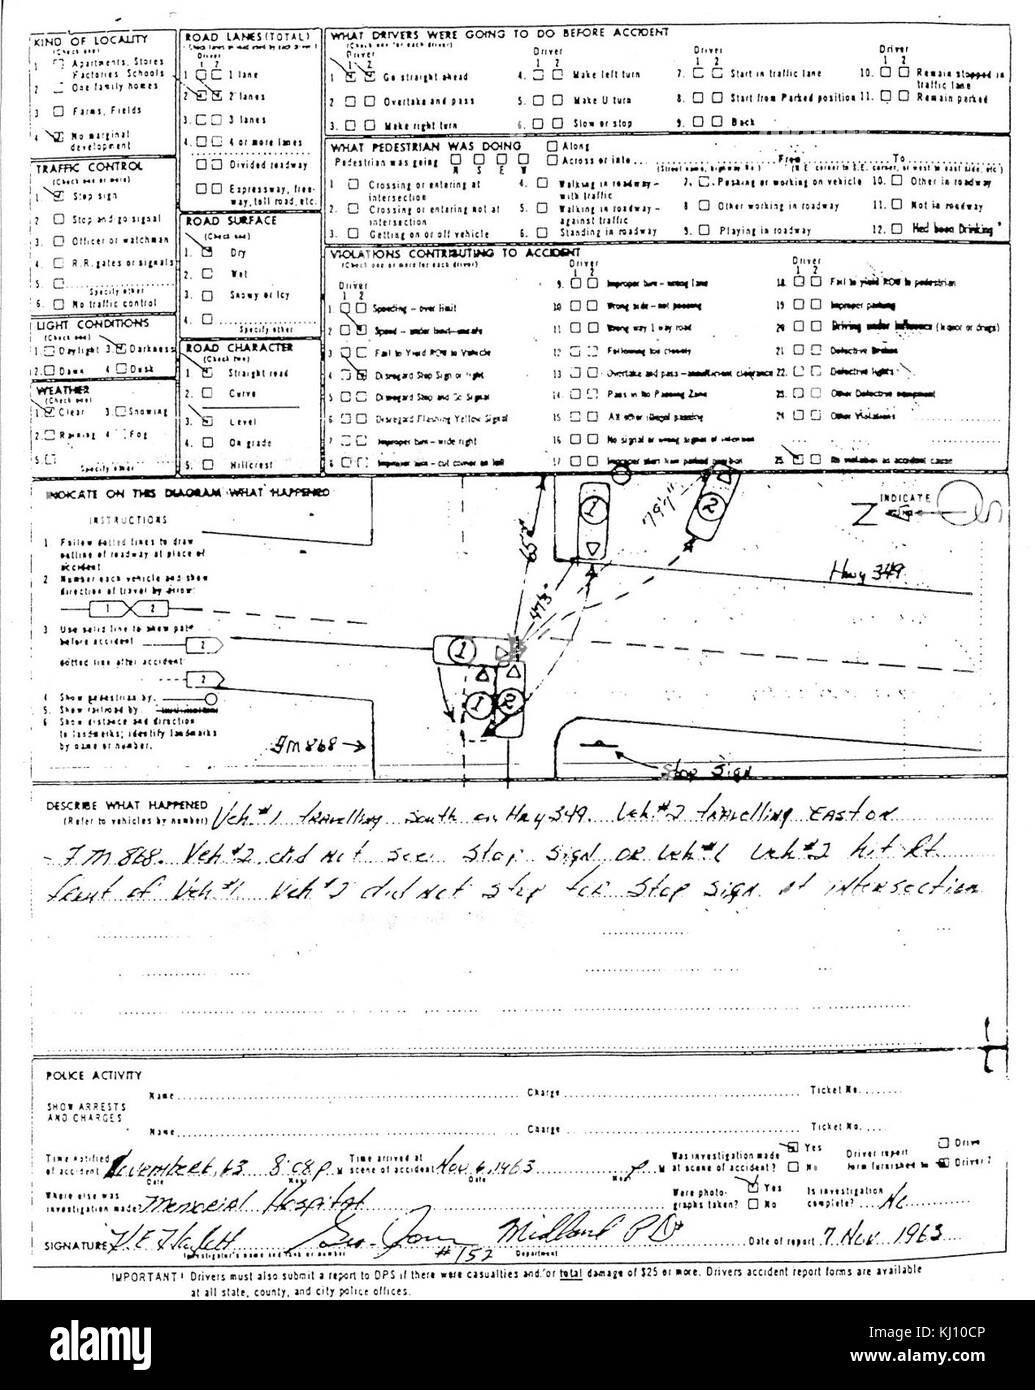 KIND OF LOCALITY
(Check one)
1 Apartments, Stores
Factories, Schools
2 One family homes
3 Farms, Fields
4 No marginal
development
TRAFFIC CONTROL
(Check one or more)
1 Stop sign
2 Stop and go signal
3 Officer or watchman
4 R.R. gates or signals
5
Specify other
6. No traffic control
LIGHT CONDITIONS
(Check one)
1 Daylight 3. Darkness
2. Dawn 4 Dusk
WEATHER
(Check one)
1 Clear 3. Snowing
2 Raining 4 Fog
5
Specify other
ROAD LANES (TOTAL)
Driver
1 2
1 1 lane
2 2 lanes
3 3 lanes
4. 4 or more lanes
Divided roadway
Expressway, free-
way, toll road, etc.
ROAD SURFACE
(Check one)
1. Dry
2 Wet
3. Snowy or Icy
4.
Specify other
ROAD CHARACTER
(Check two)
1. Straight road
2 Curve
3. Level
4 On grade
5 Hillcrest
WHAT DRIVERS WERE GOING TO DO BEFORE ACCIDENT
(Check one for each driver)
Driver
1 2
1 Go straight ahead
2 Overtake and pass
3. Make right turn
Driver
1 2
4. Make left turn
5. Make U turn
6. Slow or stop
Driver
1 2
7. Start in traffic lane
8. Start from Parked position
9. Back
Driver
1 2
10. Remain stopped in
traffic lane
11. Remain parked
WHAT PEDESTRIAN WAS DOING
Along
Pedestrian was going
N S E W
Across or into
From To
(Street name, highway No.) (N.E. corner to S.E. corner, or west to east side, etc.)
1 Crossing or entering at
intersection
2. Crossing or entering not at
intersection
3. Getting on or off vehicle
4. Walking in roadway-
with traffic
5. Walking in roadway-
against traffic
6. Standing in roadway
7. Pushing or working on vehicle
8 Other working in roadway
9. Playing in roadway
10. Other in roadway
11. Not in roadway
12. Had been Drinking
VIOLATIONS CONTRIBUTING TO ACCIDENT
(Check one or more for each driver)
Driver
1 2
1 Speeding - over limit
2 Speed - under limit - unsafe
3 Fail to Yield ROW to Vehicle
4 Disregard Stop Sign or light
5 Disregard Stop and Go Signal
6 Disregard Flashing Yellow Signal
7 Improper turn - wide right
8 Improper turn - cut corner on left
Driver
1 2
9. Improper turn - wrong lane
10 Wrong side - not passing
11 Wrong way 1 way road
12 Following too closely
13 Overtake and pass - insufficient clearance
14 Pass in No Passing Zone
15 All other illegal passing
16 No signal or wrong signal of intention
17 Improper start from parked position
Driver
1 2
18 Fail to yield ROW to pedestrian
19 Improper parking
20 Driving under influence (liquor or drugs)
21 Defective Brakes
22 Defective lights
23 Other Defective equipment
24 Other Violations
25 No violation as accident cause
INDICATE ON THIS DIAGRAM WHAT HAPPENED
INSTRUCTIONS
1 Follow dotted lines to draw
outline of roadway at place of
accident
2 Number each vehicle and show
direction of travel by arrow:
1 2
3 Use solid line to show path
before accident 2
dotted line after accident
2
4 Show pedestrian by
5 Show railroad by
6 Show distance and direction
to landmarks; identify landmarks
by name or number.
FM 868
1
1
2
1
2
INDICATE
N S
Hwy 349
Stop Sign
DESCRIBE WHAT HAPPENED
(Refer to vehicles by number)
Veh #1 travelling South on Hwy 349. Veh #2 travelling East on
FM 868. Veh #2 did not see Stop Sign or Veh #1 Veh #2 hit Rt
front of Veh #1 Veh #2 did not stop for Stop Sign at intersection
POLICE ACTIVITY
SHOW ARRESTS
AND CHARGES
Name Charge Ticket No.
Name Charge Ticket No.
Time notified
of accident November 6, 63 8:08 p M
Date Hour
Time arrived at
scene of accident Nov 6, 1963 p M
Date Hour
Was investigation made
at scene of accident? Yes
No
Driver report
form furnished to Driver 1
Driver 2
Where else was
investigation made? Memorial Hospital
Were photo-
graphs taken? Yes
No
Is investigation
complete? No
SIGNATURE
#152 Midland PD
Investigator's name and rank or number Department
Date of report 7 Nov 1963
IMPORTANT! Drivers must also submit a report to DPS if there were casualties and/or total damage of $25 or more. Drivers accident report forms are available
at all state, county, and city police offices.
alamy
Image ID: KJ10CP
www.alamy.com